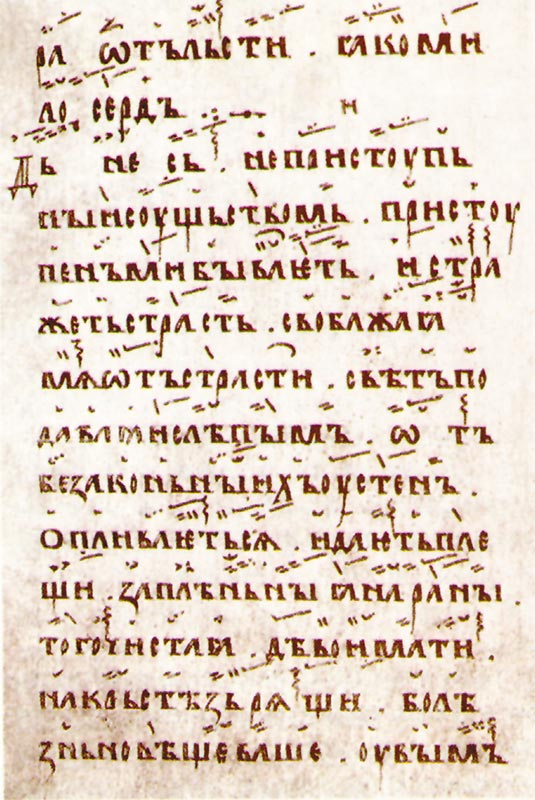 ра ѡтъ льсти . ꙗко ми
ло сердъ . н
Дь не сь . не пристоупь
ныи соущьствомь . пристоу
пенъ ми бываѥть . и стра
жеть страсть . свобажаꙗ
мѧ ѡтъ страсти . свѣтъ по
даваꙗи слѣпымъ . ѡтъ
безаконьныихъ оустенъ .
опливаѥтьсѧ . и даѥть пле
щи . за плѣньныꙗ на раны .
того чистаꙗ . дѣвои мати .
на крьстѣ зьрѧщи . болѣ
зньно вѣщеваше . оувымъ